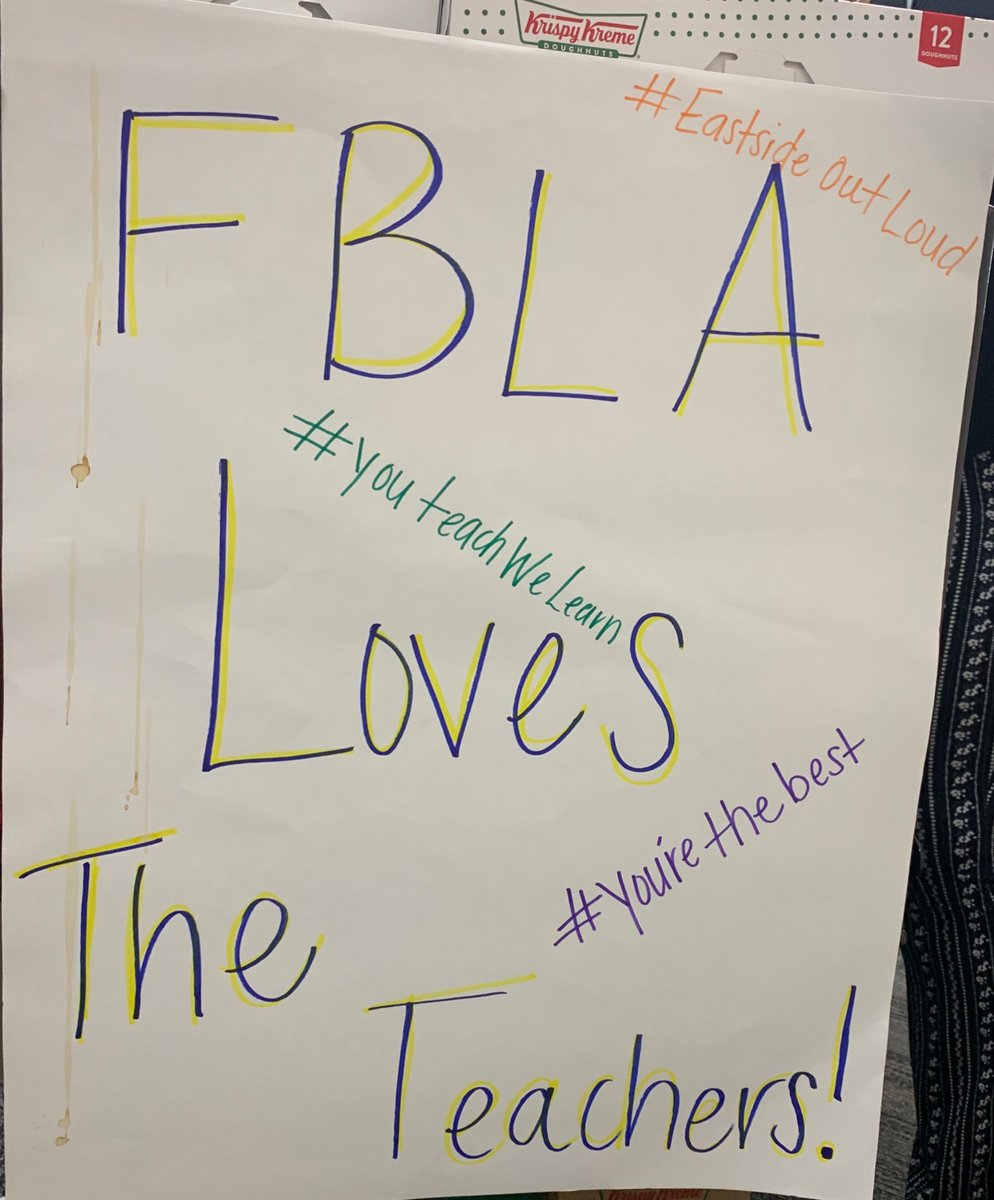 Krispy Kreme
DOUGHNUTS
12
DOUGHNUTS
#Eastside Out Loud
FBLA
#youteachWeLearn
Loves
#you're the best
The
Teachers!
Krispy Kreme